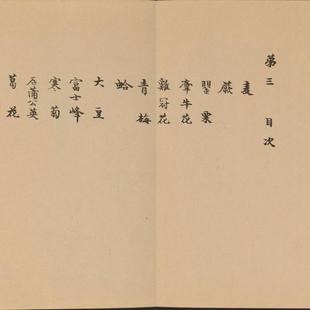 第三 目次
麦
蕨
罌粟
牽牛花
雞冠花
青梅
蛤
大豆
富士峰
寒菊
蒲公英
葛花